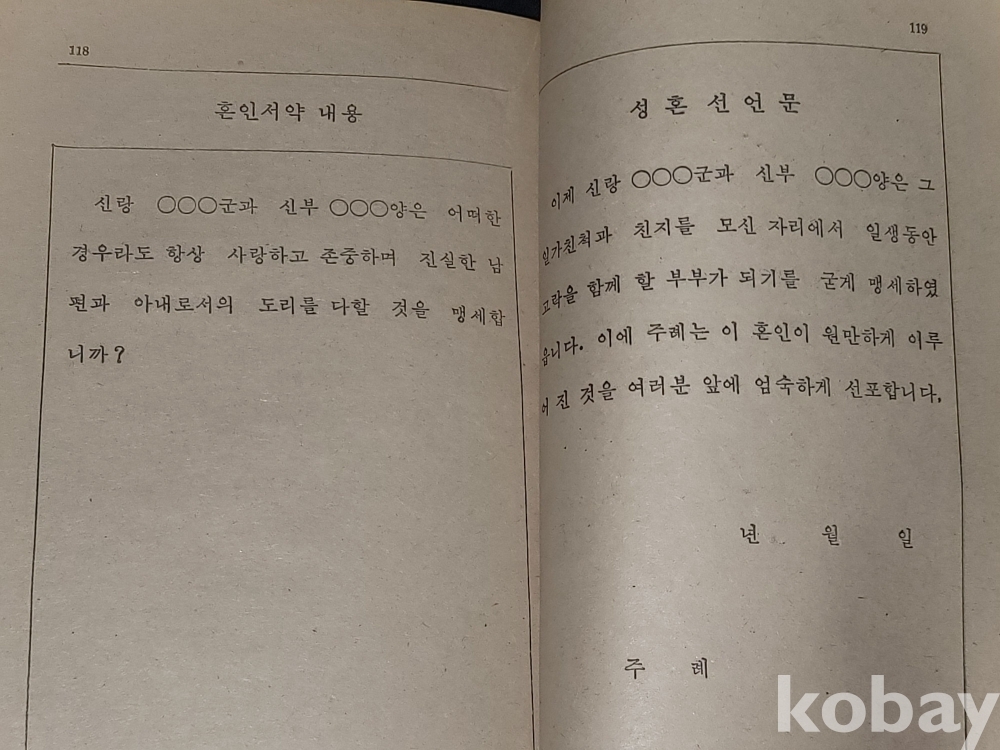 118
혼인서약 내용
신랑 ○○○군과 신부 ○○○양은 어떠한
경우라도 항상 사랑하고 존중하며 진실한 남
편과 아내로서의 도리를 다할 것을 맹세합
니까?
119
성 혼 선 언 문
이제 신랑 ○○○군과 신부 ○○○양은 그
일가친척과 친지를 모신 자리에서 일생동안
고락을 함께 할 부부가 되기를 굳게 맹세하였
읍니다. 이에 주례는 이 혼인이 원만하게 이루
어 진 것을 여러분 앞에 엄숙하게 선포합니다.
년 월 일
주 례
kobay